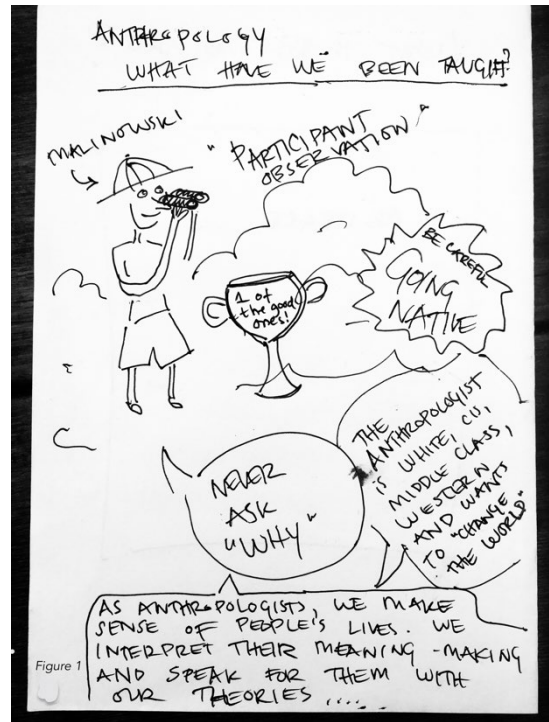 ANTHROPOLOGY
WHAT HAVE WE BEEN TAUGHT?
MALINOWSKI
"PARTICIPANT
OBSERVATION"
BE CAREFUL
GOING
NATIVE
1 of
the good
ones!
THE
ANTHROPOLOGIST
IS WHITE, CIS,
MIDDLE CLASS,
WESTERN
AND WANTS
TO "CHANGE
THE WORLD"
NEVER
ASK
"WHY"
AS ANTHROPOLOGISTS, WE MAKE
SENSE OF PEOPLE'S LIVES. WE
INTERPRET THEIR MEANING-MAKING
AND SPEAK FOR THEM WITH
OUR THEORIES .....
Figure 1